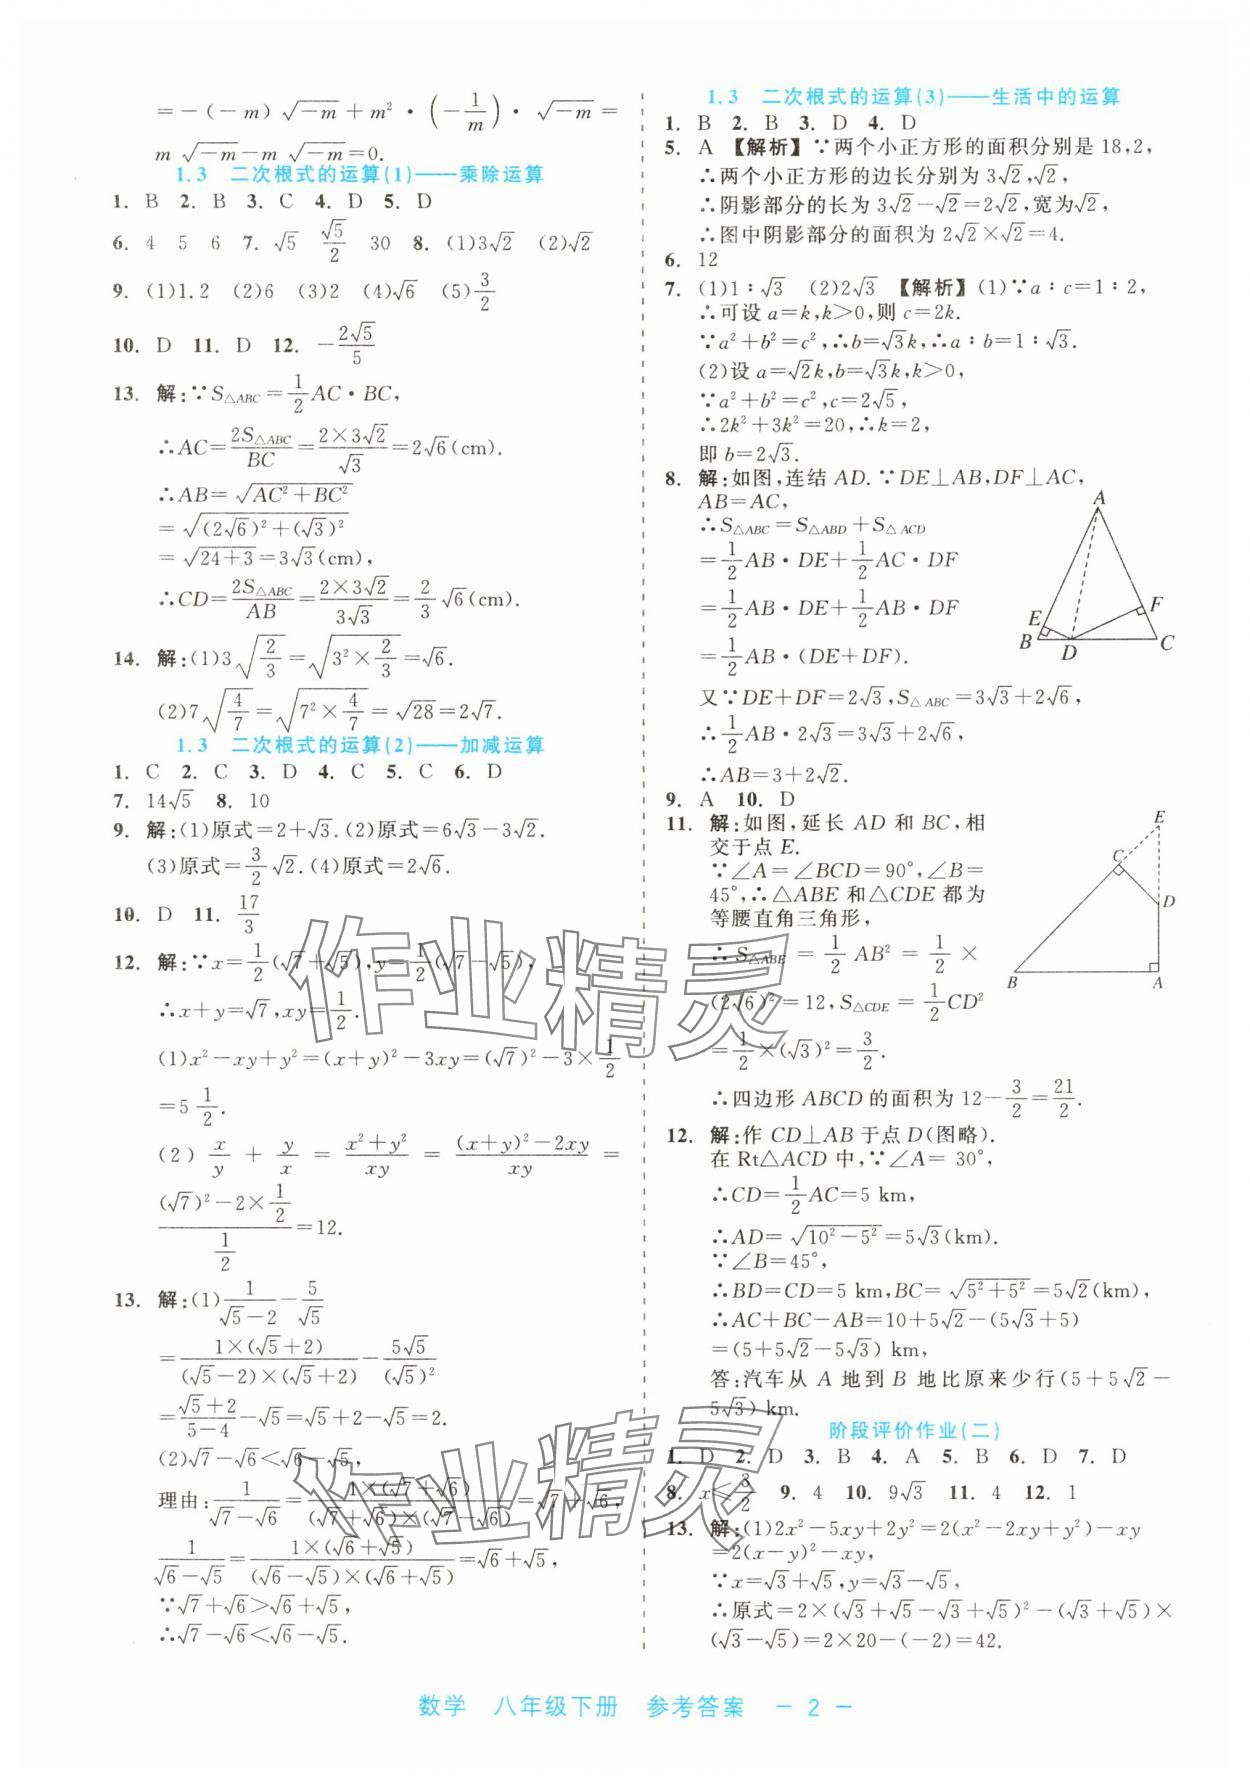 =-(-m)√(-m)+m²·(-1/m)·√(-m)=
m√(-m)-m√(-m)=0.
1.3 二次根式的运算(1)——乘除运算
1. B 2. B 3. C 4. D 5. D
6. 4 5 6 7. √5 √5/2 30 8. (1)3√2 (2)√2
9. (1)1.2 (2)6 (3)2 (4)√6 (5)3/2
10. D 11. D 12. -2√5/5
13. 解:∵S△ABC=1/2AC·BC,
∴AC=2S△ABC/BC=2×3√2/√3=2√6(cm).
∴AB=√(AC²+BC²)
=√((2√6)²+(√3)²)
=√(24+3)=3√3(cm),
∴CD=2S△ABC/AB=2×3√2/3√3=2/3√6(cm).
14. 解:(1)3√(2/3)=√(3²×2/3)=√6.
(2)7√(4/7)=√(7²×4/7)=√28=2√7.
1.3 二次根式的运算(2)——加减运算
1. C 2. C 3. D 4. C 5. C 6. D
7. 14√5 8. 10
9. 解:(1)原式=2+√3.(2)原式=6√3-3√2.
(3)原式=3/2√2.(4)原式=2√6.
10. D 11. 17/3
12. 解:∵x=1/2(√7+√5),y=1/2(√7-√5),
∴x+y=√7,xy=1/2.
(1)x²-xy+y²=(x+y)²-3xy=(√7)²-3×1/2
=5 1/2.
(2)x/y+y/x=(x²+y²)/xy=((x+y)²-2xy)/xy=
((√7)²-2×1/2)/(1/2)=12.
13. 解:(1)1/(√5-2)-5/√5
=1×(√5+2)/((√5-2)×(√5+2))-5√5/(√5)²
=(√5+2)/(5-4)-√5=√5+2-√5=2.
(2)√7-√6<√6-√5.
理由:1/(√7-√6)=1×(√7+√6)/((√7+√6)×(√7-√6))=√7+√6,
1/(√6-√5)=1×(√6+√5)/((√6-√5)×(√6+√5))=√6+√5,
∵√7+√6>√6+√5,
∴√7-√6<√6-√5.
1.3 二次根式的运算(3)——生活中的运算
1. B 2. B 3. D 4. D
5. A 【解析】∵两个小正方形的面积分别是18,2,
∴两个小正方形的边长分别为3√2,√2,
∴阴影部分的长为3√2-√2=2√2,宽为√2,
∴图中阴影部分的面积为2√2×√2=4.
6. 12
7. (1)1∶√3 (2)2√3 【解析】(1)∵a∶c=1∶2,
∴可设a=k,k>0,则c=2k.
∵a²+b²=c²,∴b=√3k,∴a∶b=1∶√3.
(2)设a=√2k,b=√3k,k>0,
∵a²+b²=c²,c=2√5,
∴2k²+3k²=20,∴k=2,
即b=2√3.
8. 解:如图,连结AD.∵DE⊥AB,DF⊥AC,
AB=AC,
∴S△ABC=S△ABD+S△ACD
=1/2AB·DE+1/2AC·DF
=1/2AB·DE+1/2AB·DF
=1/2AB·(DE+DF).
又∵DE+DF=2√3,S△ABC=3√3+2√6,
∴1/2AB·2√3=3√3+2√6,
∴AB=3+2√2.
A
E
F
B
D
C
9. A 10. D
11. 解:如图,延长AD和BC,相
交于点E.
∵∠A=∠BCD=90°,∠B=
45°,∴△ABE和△CDE都为
等腰直角三角形,
∴S△ABE=1/2AB²=1/2×
(2√6)²=12,S△CDE=1/2CD²
=1/2×(√3)²=3/2.
∴四边形ABCD的面积为12-3/2=21/2.
E
C
D
B
A
12. 解:作CD⊥AB于点D(图略).
在Rt△ACD中,∵∠A=30°,
∴CD=1/2AC=5 km,
∴AD=√(10²-5²)=5√3(km).
∵∠B=45°,
∴BD=CD=5 km,BC=√(5²+5²)=5√2(km),
∴AC+BC-AB=10+5√2-(5√3+5)
=(5+5√2-5√3)km,
答:汽车从A地到B地比原来少行(5+5√2-
5√3)km.
阶段评价作业(二)
1. D 2. D 3. B 4. A 5. B 6. D 7. D
8. x≤3/2 9. 4 10. 9√3 11. 4 12. 1
13. 解:(1)2x²-5xy+2y²=2(x²-2xy+y²)-xy
=2(x-y)²-xy,
∵x=√3+√5,y=√3-√5,
∴原式=2×(√3+√5-√3+√5)²-(√3+√5)×
(√3-√5)=2×20-(-2)=42.
作业精灵
作业精灵
数学 八年级下册 参考答案 -2-